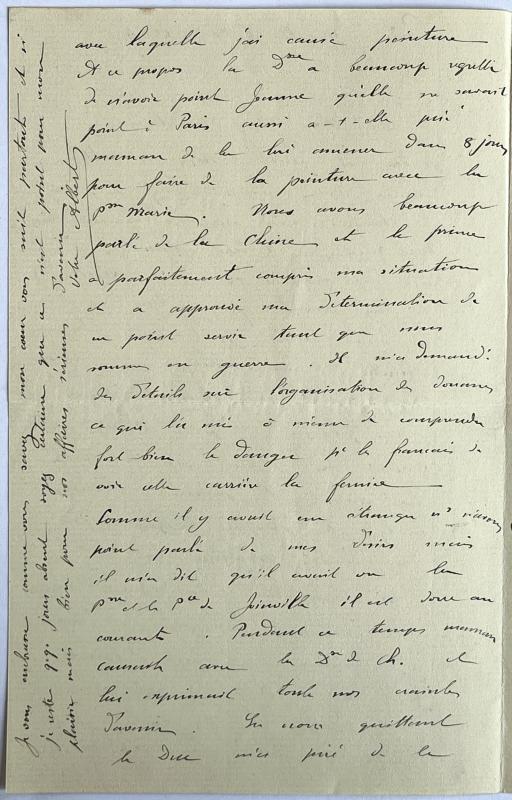 avec laquelle j'ai causé peinture
A ce propos la Dsse a beaucoup regretté
de n'avoir point Jeanne qu'elle ne savait
point à Paris aussi a-t-elle prié
maman de la lui amener dans 8 jours
pour faire de la peinture avec la
psse Marie. Nous avons beaucoup
parlé de la Chine et le prince
a parfaitement compris ma situation
et a approuvé ma détermination de
ne point servir tant que nous
sommes en guerre. Il m'a demandé
des détails sur l'organisation des douanes
ce qui l'a mis à même de comprendre
fort bien le danger pr le français de
voir cette carrière la fermée
Comme il y avait un étranger ns n'avons
point parlé de mes désirs mais
il m'a dit qu'il avait vu le
pce et la psse de Joinville il est donc au
courant. Pendant ce temps maman
causait avec la Dsse de Ch. et
lui exprimait toutes nos craintes
d'avenir. En nous quittant
le Duc m'a prié de le
Je vous embrasse comme vous savez mon cœur vous suit partout et si
je reste q.q. jours absent soyez certaine que ce n'est point pour mon
plaisir mais bien pour nos affaires sérieuses d'avenir
Votre Albert